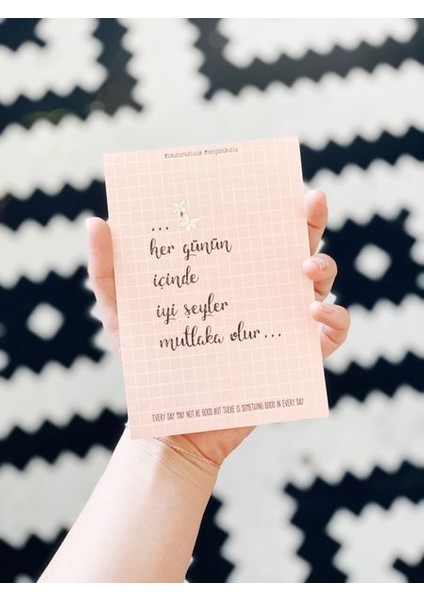 ...
her günün
içinde
iyi şeyler
mutlaka olur...
EVERY DAY MAY NOT BE GOOD BUT THERE IS SOMETHING GOOD IN EVERY DAY